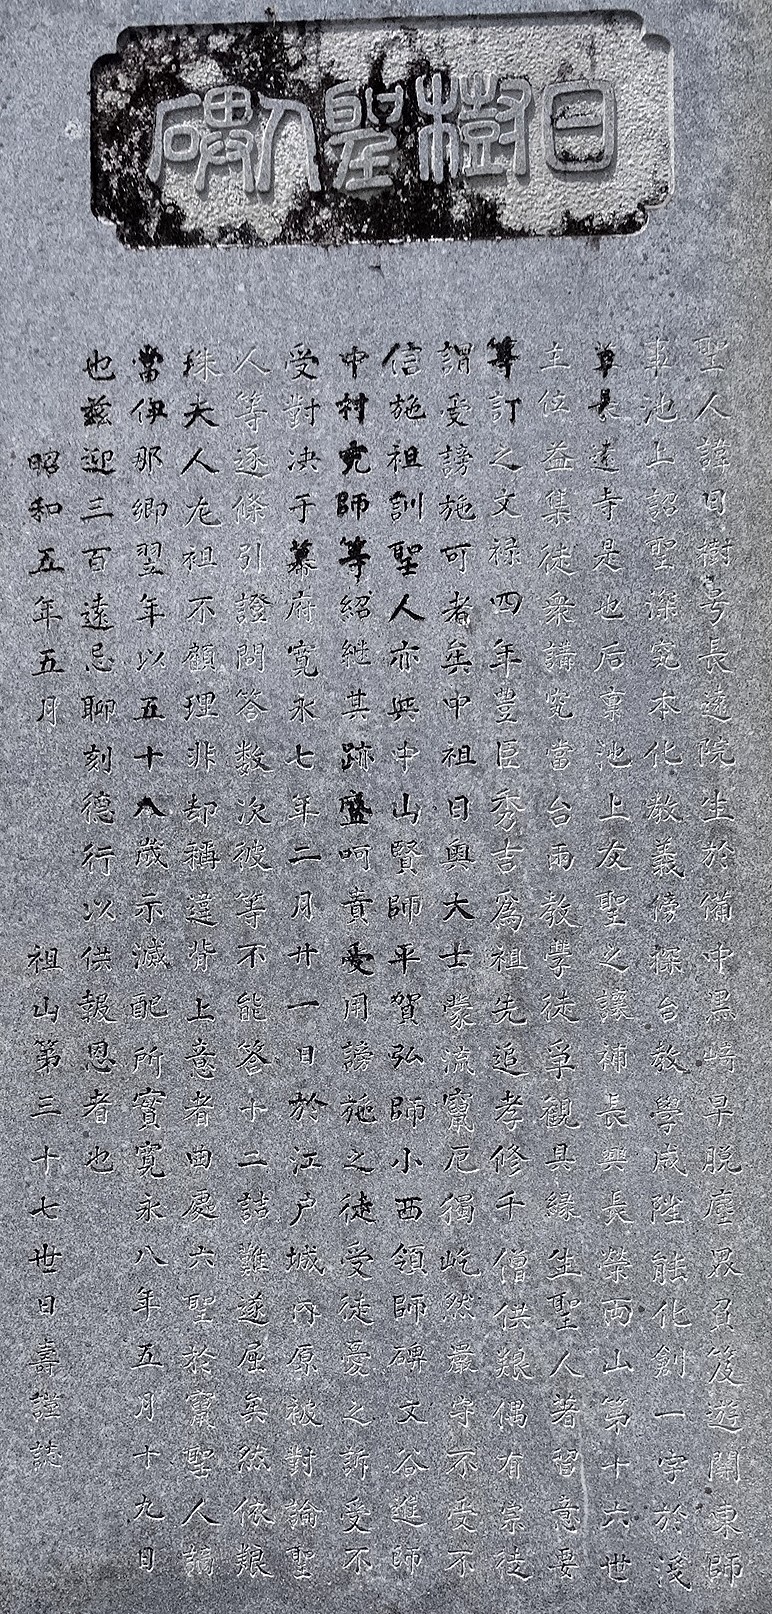 日樹聖人碑
聖人諱日樹号長遠院生於備中黒崎早脱塵界負笈遊關東師
事池上詔聖深究本化教義傍探台教學成陞能化創一宇於淺
草長遠寺是也后稟池上友聖之讓補長興長榮両山第十六世
主位益集徒衆講究當台両教學徒爭觀具縁生聖人著習意要
等訂之文禄四年豊臣秀吉爲祖先追孝修千僧供艱偶有宗徒
謂受謗施可者矣中祖日奥大士蒙流竄厄獨屹然嚴守不受不
信施祖訓聖人亦與中山賢師平賀弘師小西領師碑文谷進師
中村充師等紹継其跡盛呵責憂用謗施之徒受徒憂之訴受不
受對决于幕府寛永七年二月廿一日於江戸城内原被對論聖
人等逐條引證問答数次彼等不能答十二詰難遂屈矣然依粮
珠夫人尨祖不顧理非却稱違背上意者曲處六聖於竄聖人謫
當伊那郷翌年以五十八歳示滅配所實寛永八年五月十九日
也茲迎三百遠忌聊刻德行以供報恩者也
昭和五年五月　祖山第三十七世日壽謹誌